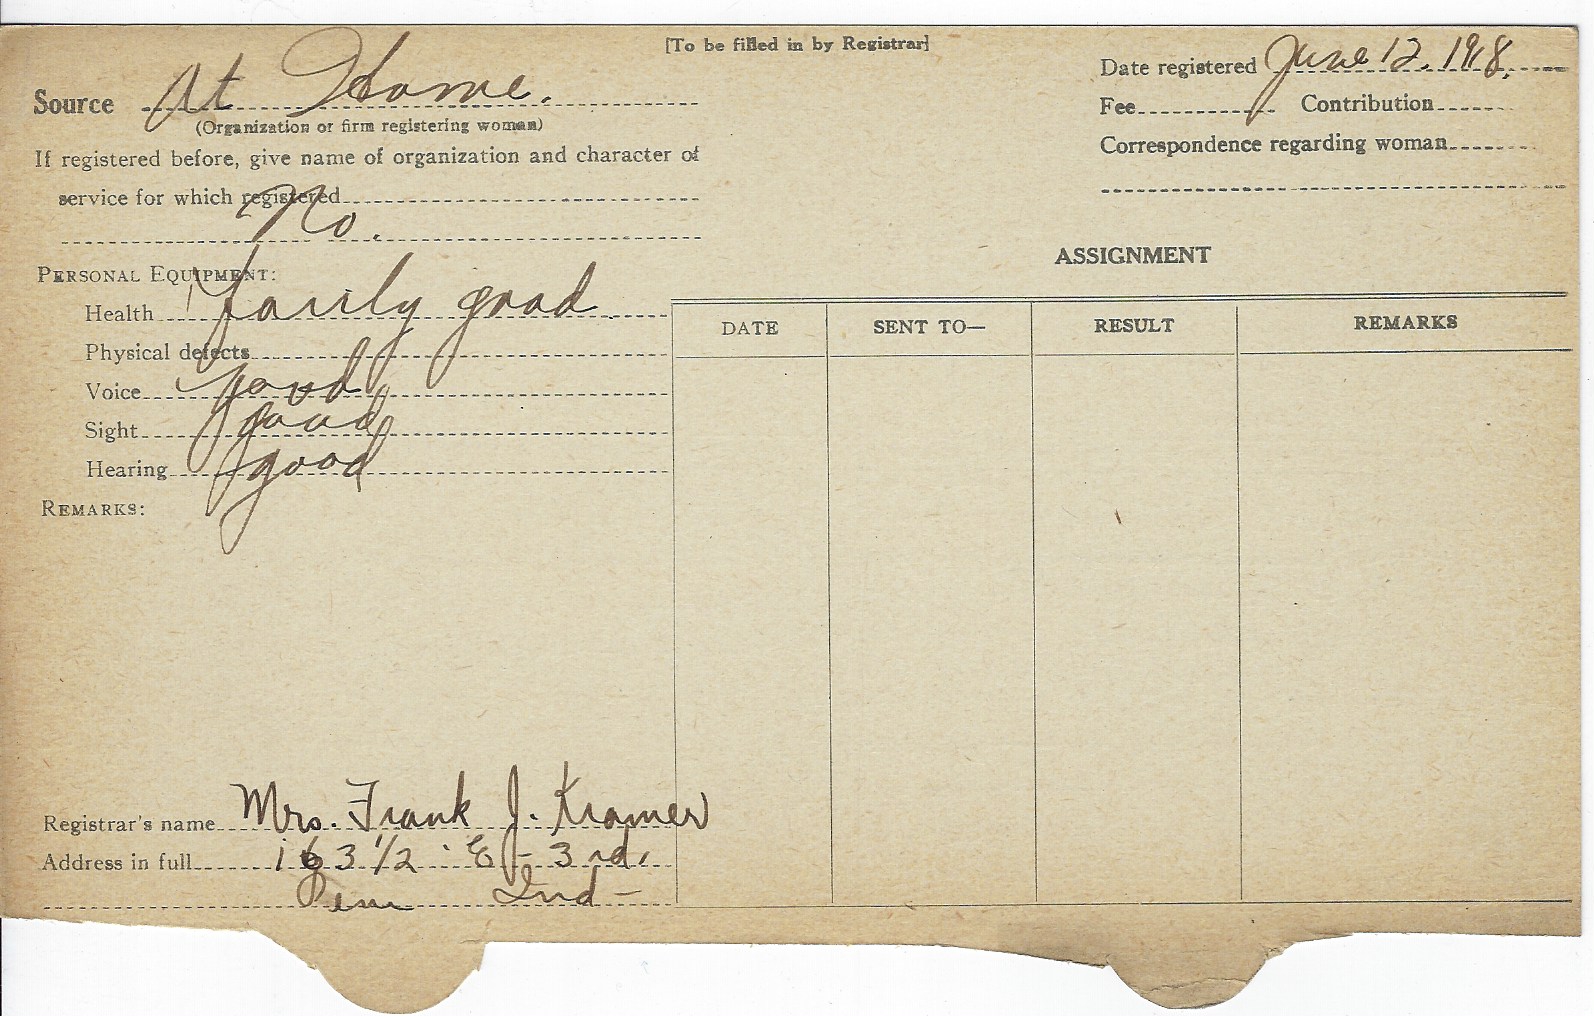 [To be filled in by Registrar]
Source At Home.
(Organization or firm registering woman)
If registered before, give name of organization and character of
service for which registered
No.
PERSONAL EQUIPMENT:
Health fairly good.
Physical defects
Voice good
Sight good
Hearing good
REMARKS:
Registrar's name Mrs. Frank J. Kramer
Address in full 163 1/2 E - 3rd.
Peru Ind -
Date registered June 12, 1918.
Fee Contribution
Correspondence regarding woman
ASSIGNMENT
DATE SENT TO— RESULT REMARKS